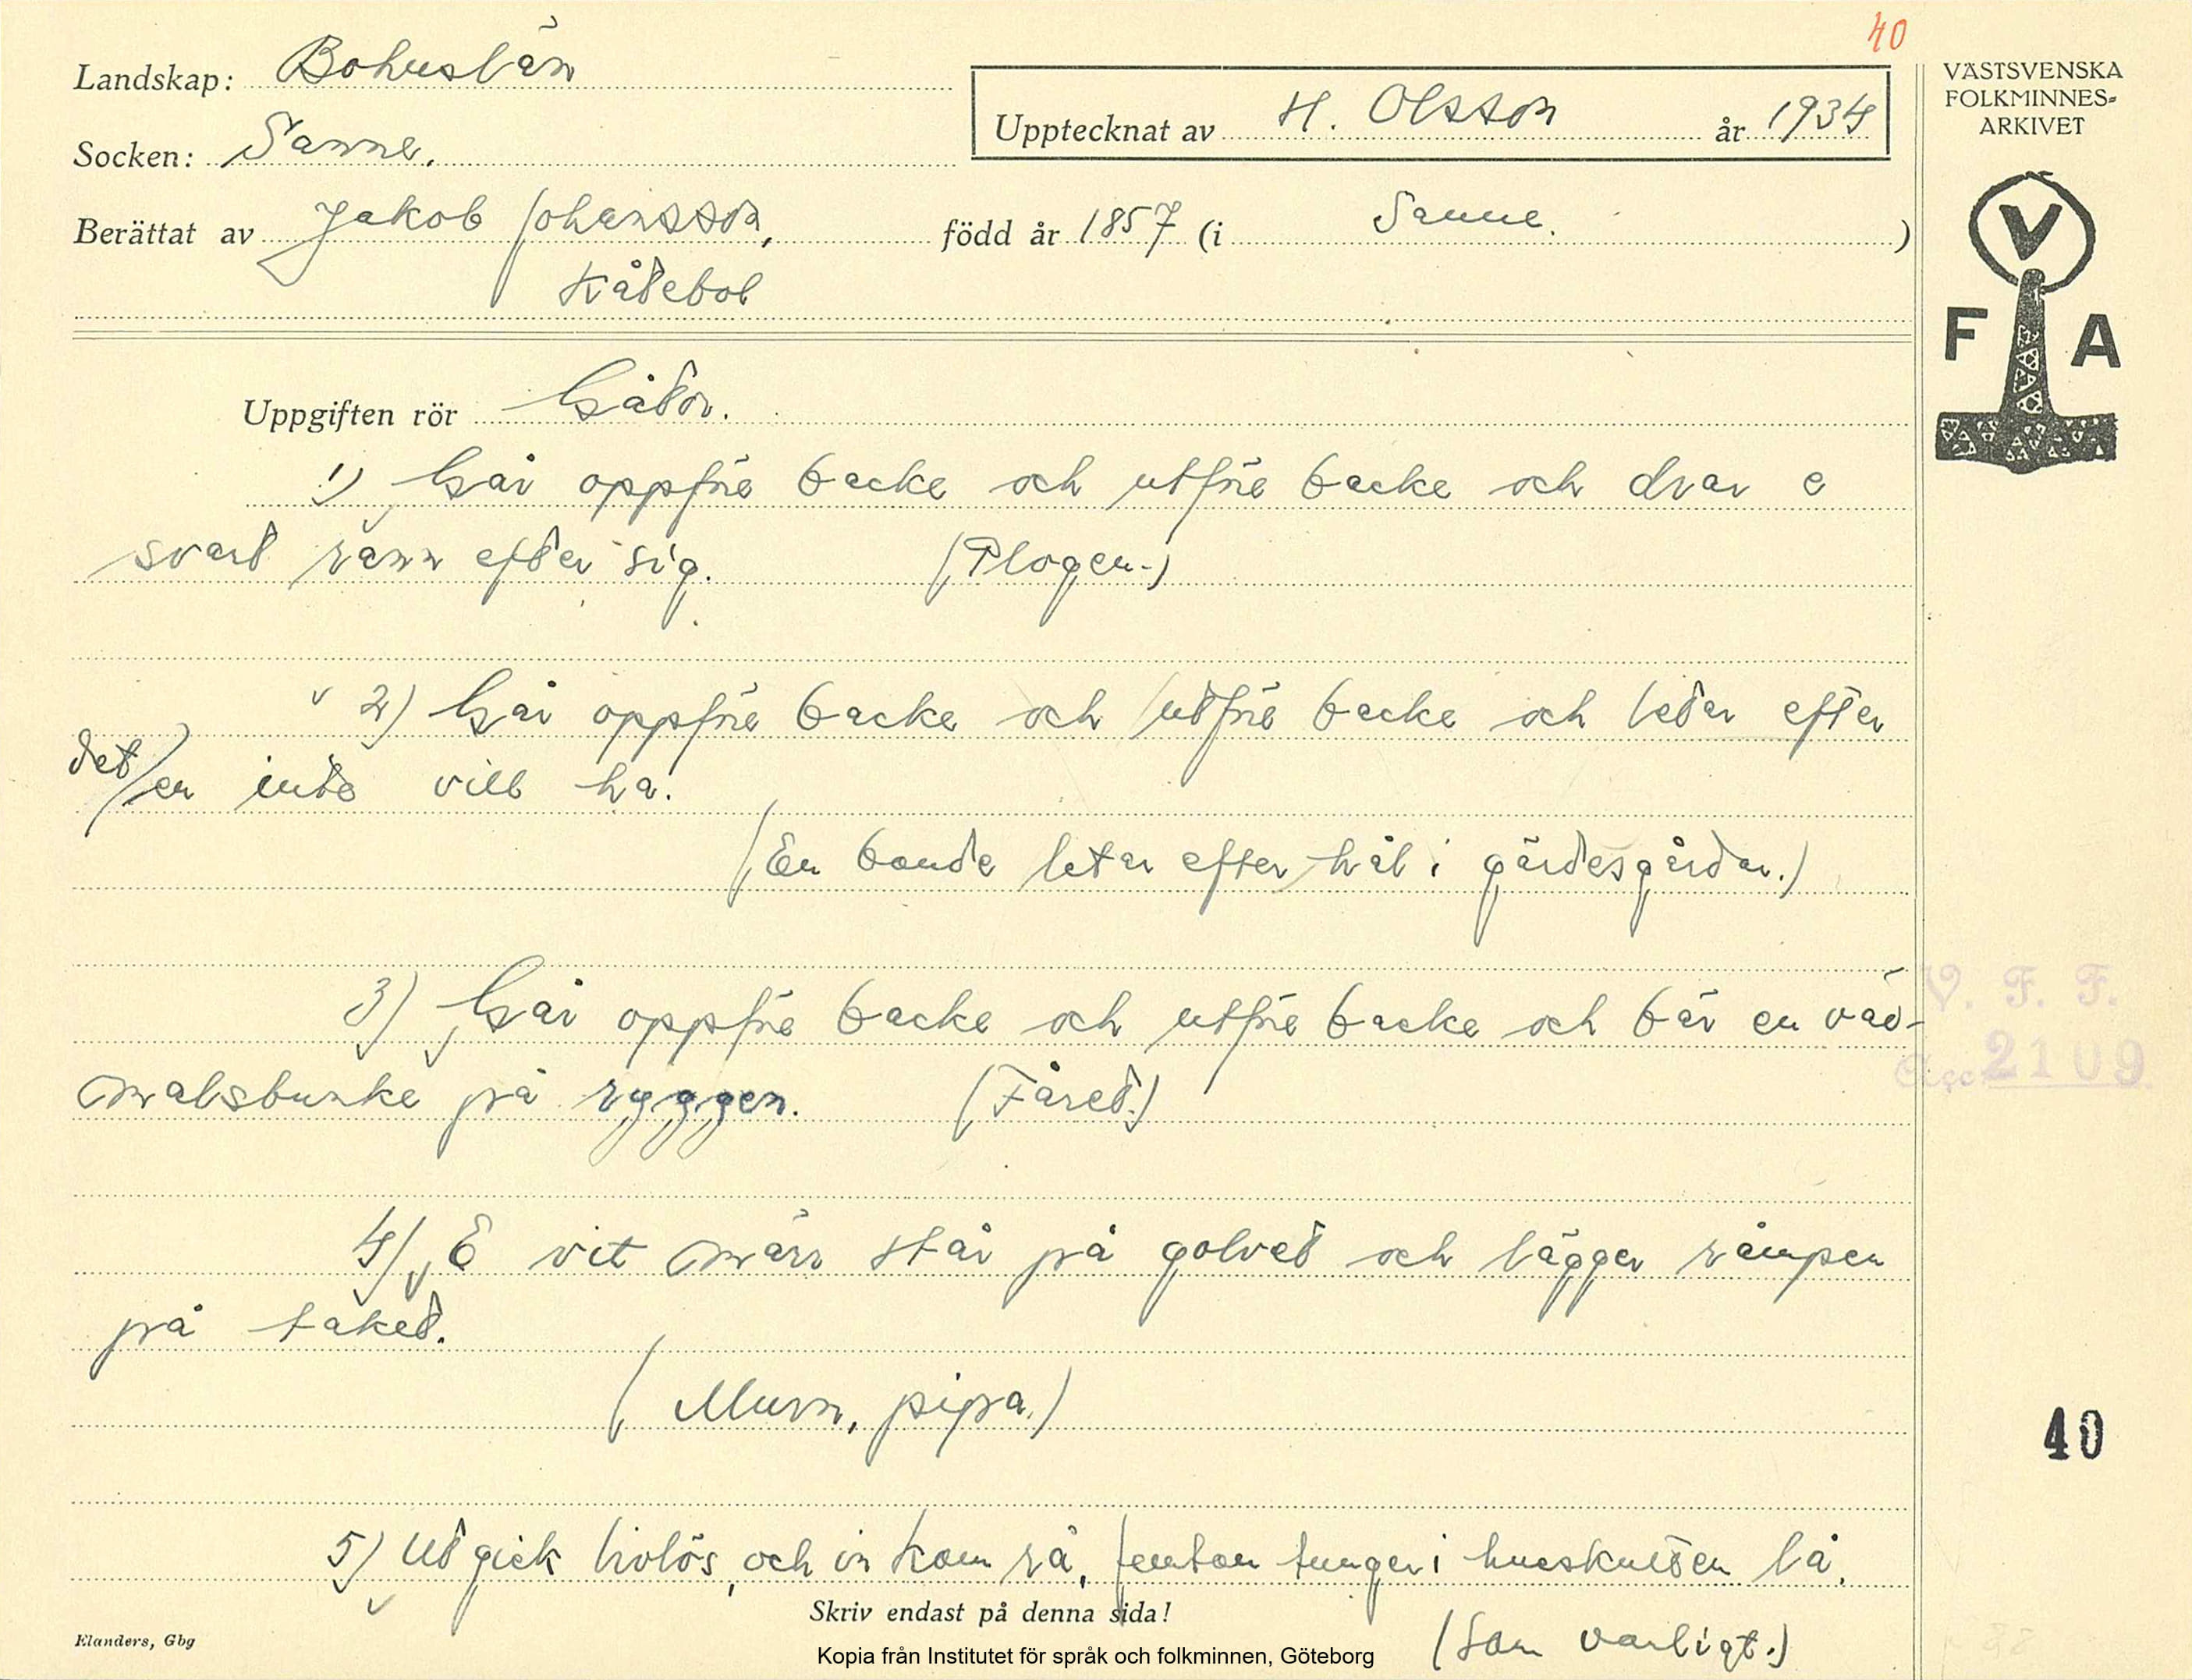 40
Landskap: Bohuslän
Upptecknat av H. Olsson år 1934
VÄSTSVENSKA
FOLKMINNES-
ARKIVET
Socken: Sanne.
Berättat av Jakob Johansson, född år 1857 (i Sanne. )
Kåtebol
V
F A
Uppgiften rör Gåtor.
1) Går oppför backe och utför backe och drar e
svart rann efter sig. (Plogen.)
2) Går oppför backe och utför backe och letar efter
det en inte vill ha.
(En bonde letar efter hål i gärdesgårdar.)
3) Går oppför backe och utför backe och bär en vad-
malsbunke på ryggen. (Fåret.)
V. F. F.
2109
4) E vit märr står på golvet och lägger rumpen
på taket.
(Murn, pipa.)
40
5) Ut gick livlös, och in kom rå, femton tunger i hueskulten lå.
Skriv endast på denna sida!
(Som vanligt.)
Elanders, Gbg
Kopia från Institutet för språk och folkminnen, Göteborg